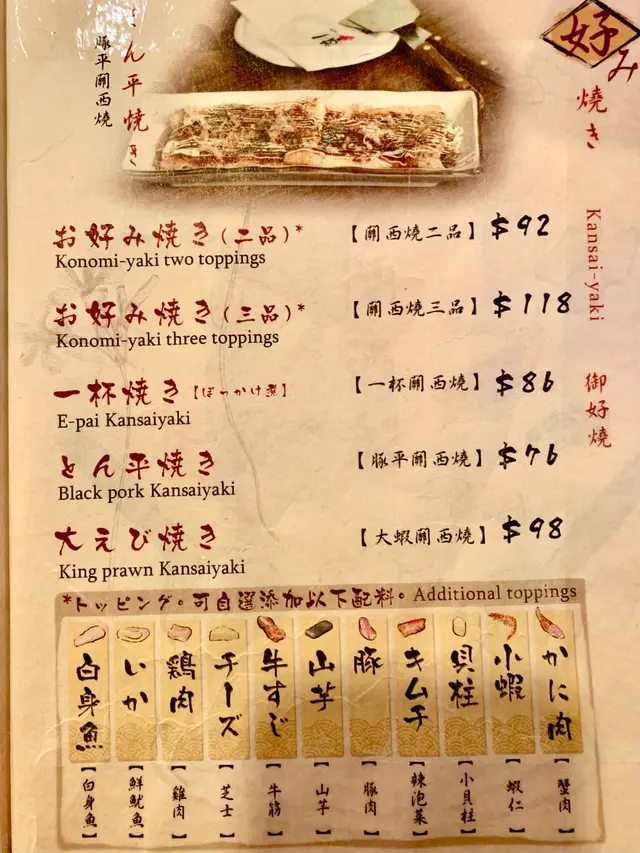 とん平焼き
豚平關西燒
好み
燒き
Kansai-yaki
御好燒
お好み焼き(二品)* 【關西燒二品】 $92
Konomi-yaki two toppings
お好み焼き(三品)* 【關西燒三品】 $118
Konomi-yaki three toppings
一杯焼き【ぼっかけ煮】 【一杯關西燒】 $86
E-pai Kansaiyaki
とん平焼き 【豚平關西燒】 $76
Black pork Kansaiyaki
大えび焼き 【大蝦關西燒】 $98
King prawn Kansaiyaki
*トッピング。可自選添加以下配料。Additional toppings
白身魚 いか 鶏肉 チーズ 牛すじ 山芋 豚 キムチ 貝柱 小蝦 かに肉
【白身魚】 【鮮魷魚】 【雞肉】 【芝士】 【牛筋】 【山芋】 【豚肉】 【辣泡菜】 【小貝柱】 【蝦仁】 【蟹肉】